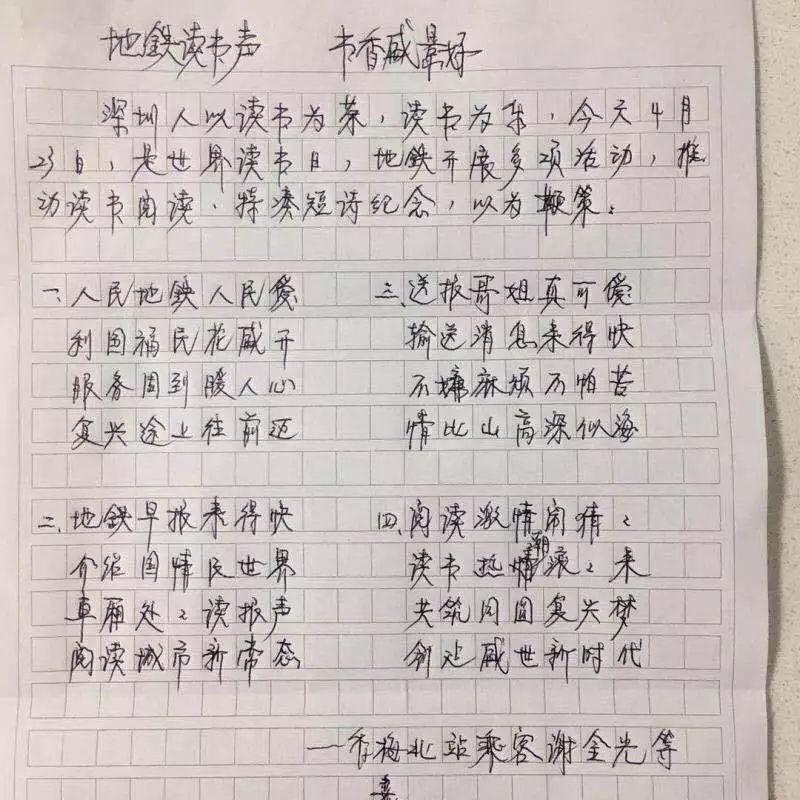 地鉄读书声 书香感最好
深圳人以读书为荣，读书为乐，今天4月
23日，是世界读书日，地鉄开展多项活动，推
动读书阅读．特凑短诗纪念，以为鞭策。
一、人民地鉄人民爱
利国福民花盛开
服务周到暖人心
复兴途上往前迈
二、地鉄早报来得快
介绍国情民世界
车厢处々读报声
阅读城市新常态
三、送报哥姐真可爱
输送消息来得快
不嫌麻烦不怕苦
情比山高深似海
四、阅读激情闹猜々
读书热潮滚々来
共筑同圆复兴梦
创造盛世新时代
——香梅北站乘客谢金光等